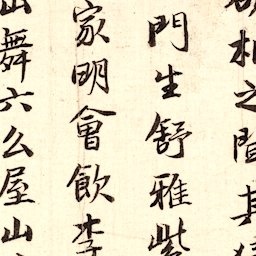 之隑其
門生舒雅紫
家明會飲李
舞六么屋山